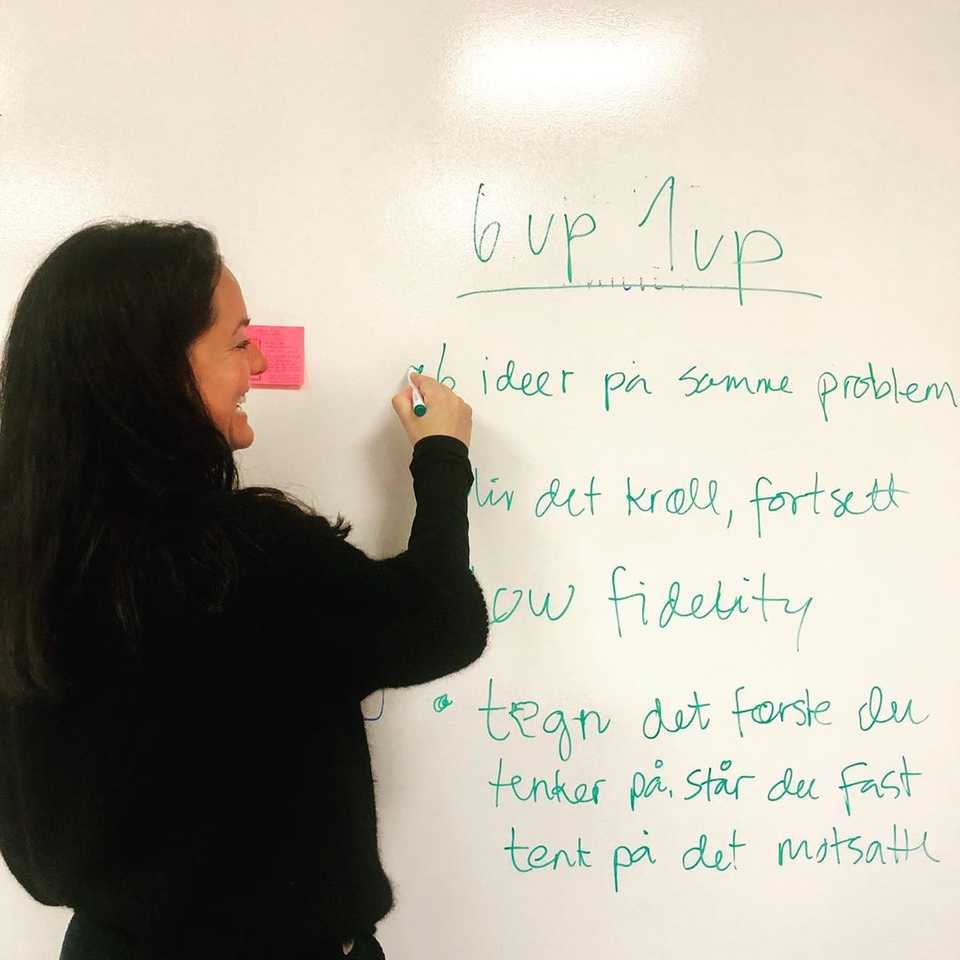 6 up 1 up
6 ideer på samme problem
det krøll, fortsett
low fidelity
• tegn det første du
tenker på. står du fast
tenk på det motsatte